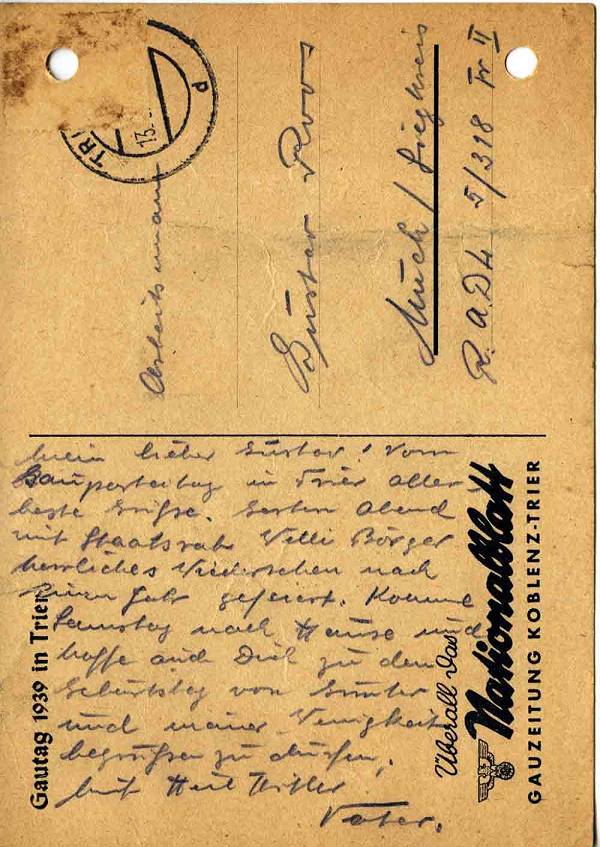 TRI
13.
d
Arbeitsmann
Gustav Roos
Much / Siegkreis
R.A.D.L 5/318 Fr II
Mein lieber Gustav! Vom
Gauparteitag in Trier aller-
beste Grüße. Gestern Abend
mit Staatsrat Willi Börger
herrliches Wiedersehen nach
einem Jahr gefeiert. Komme
Samstag nach Hause und
hoffe auch Dich zu dem
Geburtstag von Günter
und meiner Wenigkeit
begrüßen zu dürfen,
mit Heil Hitler
Vater.
Gautag 1939 in Trier
Überall das
Nationalblatt
GAUZEITUNG KOBLENZ-TRIER